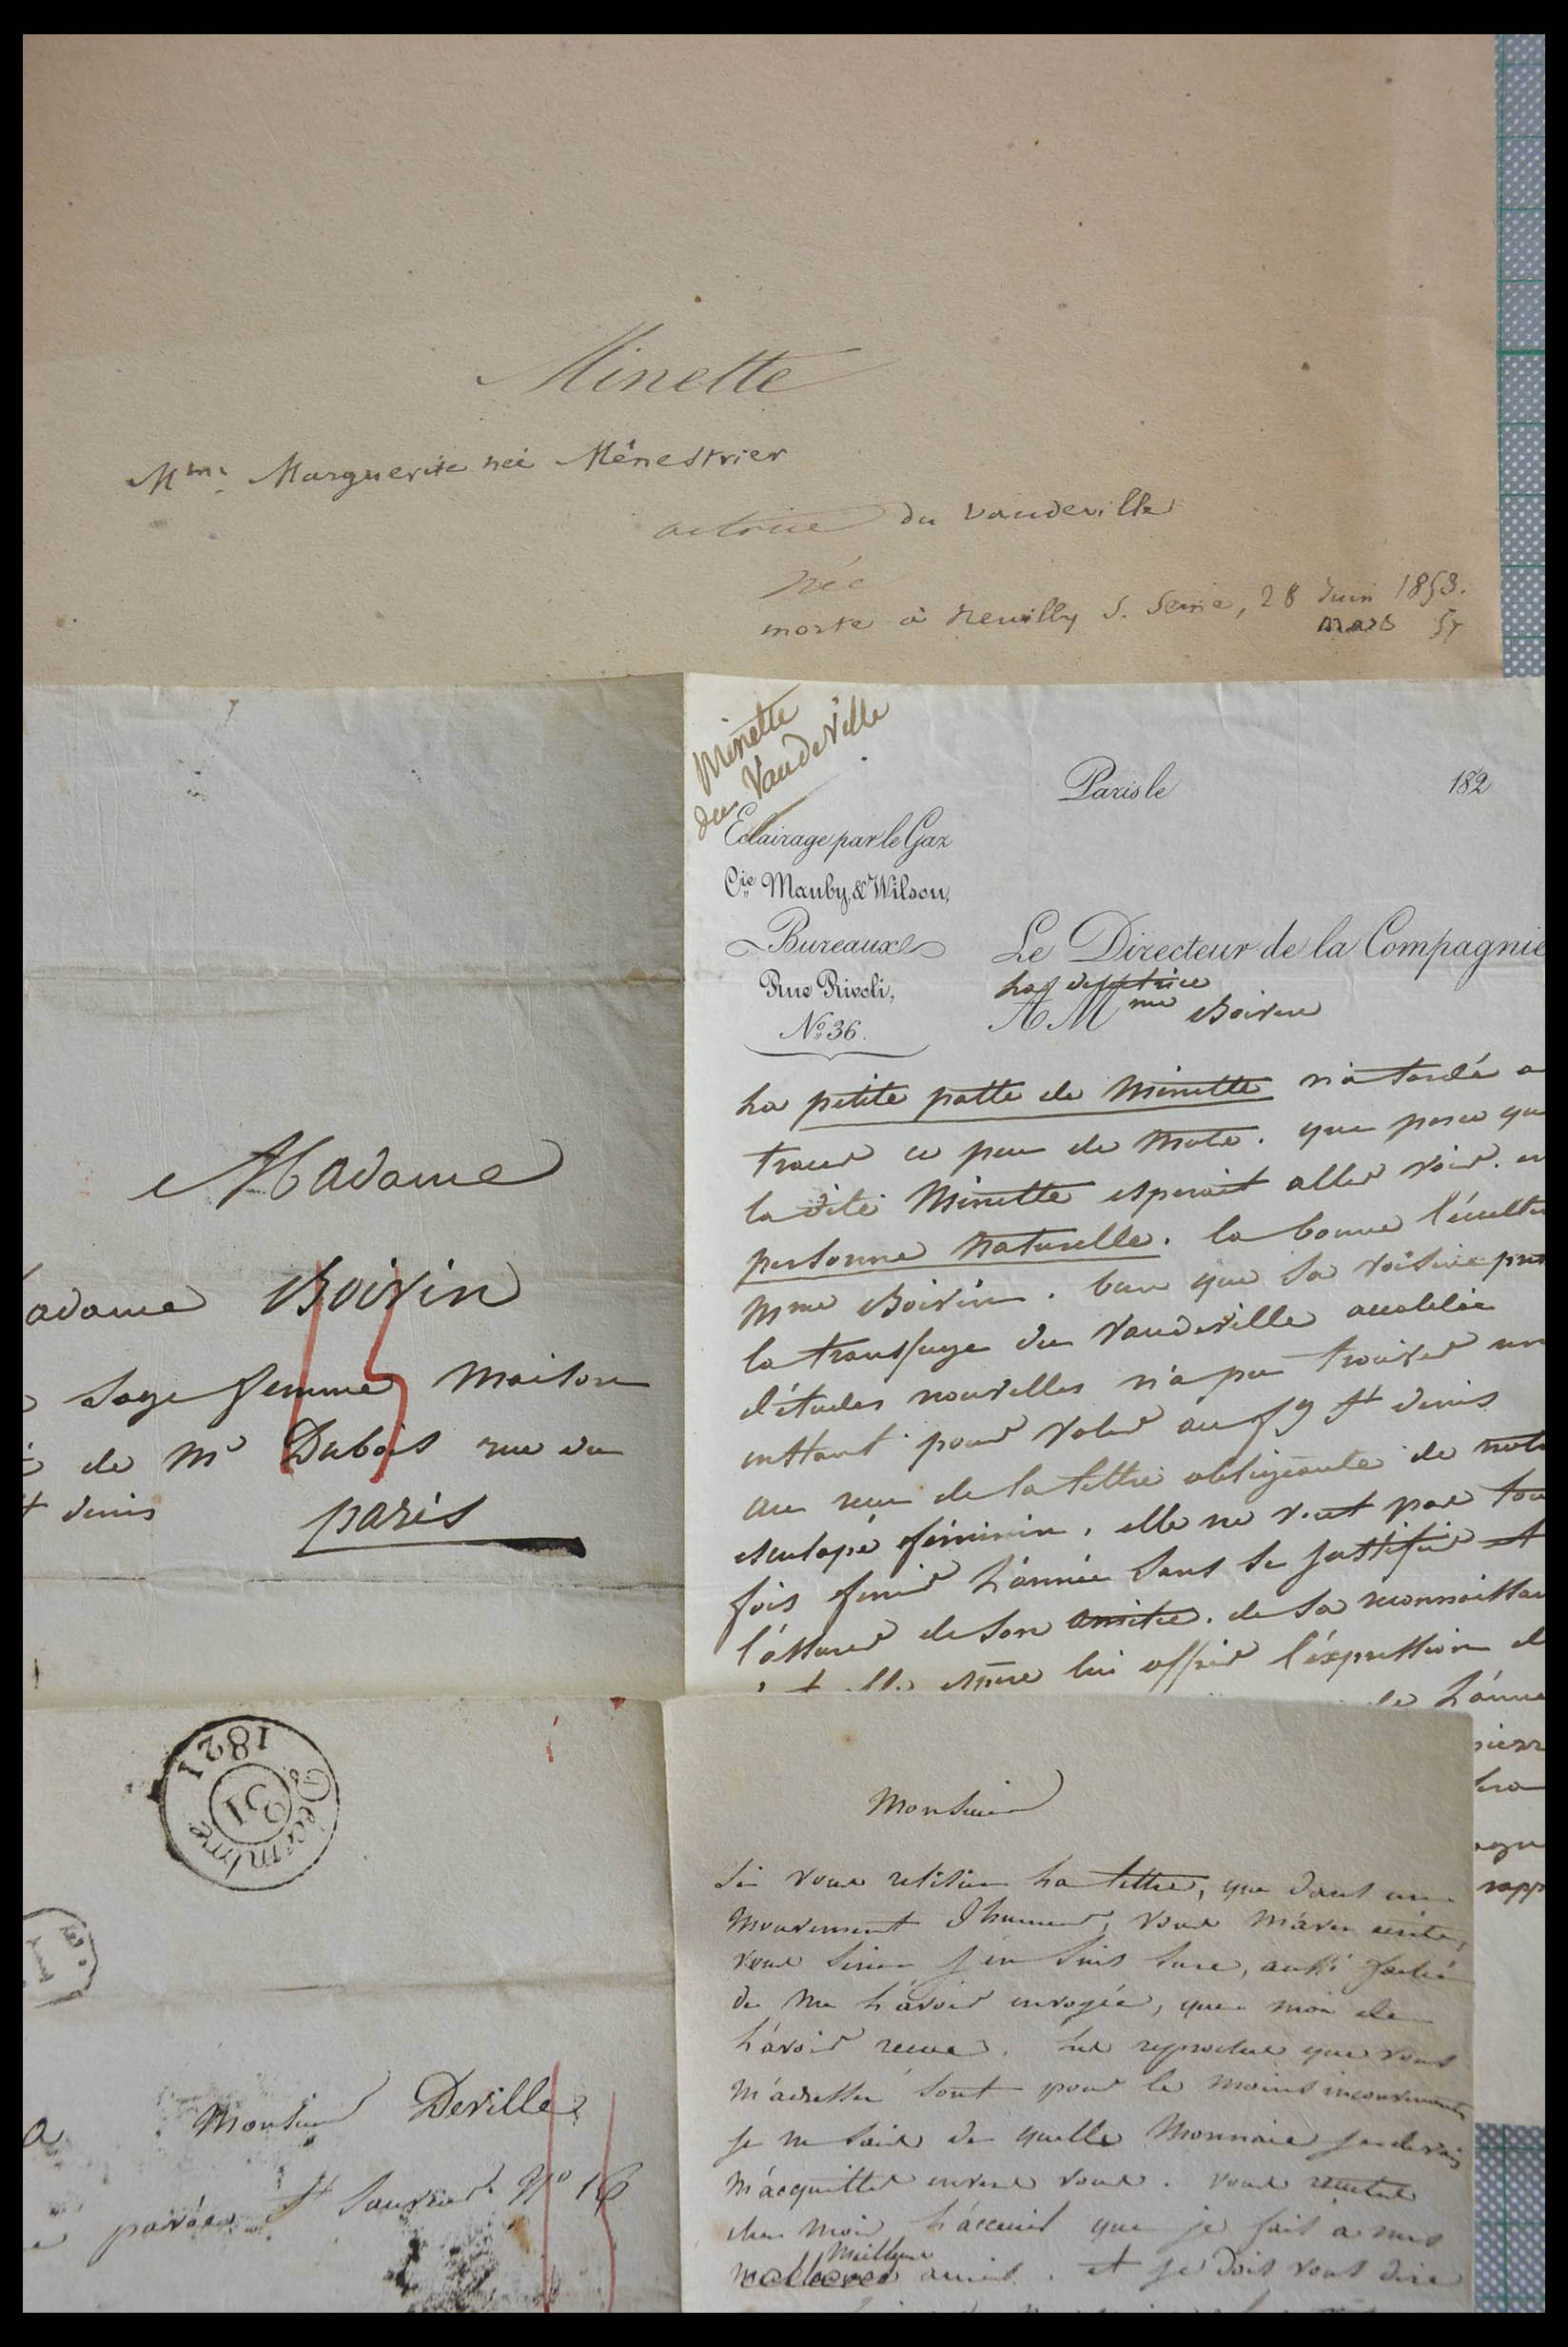 Minette
Mme Marguerite née Ménestrier
actrice du Vaudeville
née
morte à Neuilly s. Seine, 28 Juin 1853.
mars 57
Minette
du Vaudeville
Paris le 182
Eclairage par le Gaz
Cie Manby & Wilson,
Bureaux
Rue Rivoli,
No 36.
Le Directeur de la Compagnie
A Mme Boivin
La petite patte de Minette n'a tardé a
tracer ce peu de mots. que parce que
la dite Minette esperait aller voir. en
personne naturelle. la bonne l'éxcellen
Mme Boivin. bien que sa voisine
la transfuge du Vaudeville accablée
d'études nouvelles n'a pu trouver un
instant pour voler au fg St denis
au reçu de la lettre obligeante de notr
esculape féminin, elle ne veut pas tou
fois finir l'année sans se justifier et
l'assurer de son amitié. de sa reconnoissan
espère lui offrir l'éxpression d
de l'anné
Madame
adame Boivin
sage femme Maison
de Mr Dubois rue du
t denis
paris
Décembre
31
1821
Monsieur Deville
St Sauveur No 16
Monsieur
Si vous relisiez la lettre, que dans un
mouvement d'humeur, vous m'avez écrite,
vous seriez j'en suis sure, aussi faché
de me l'avoir envoyée, que moi de
l'avoir reçue. Les reproches que vous
m'adressez sont pour le moins inconvenants
je ne sais de quelle monnaie je devrais
m'acquitter envers vous. vous
chez moi l'accueil que je fais à mes
meilleurs
amis. et je dois vous dire